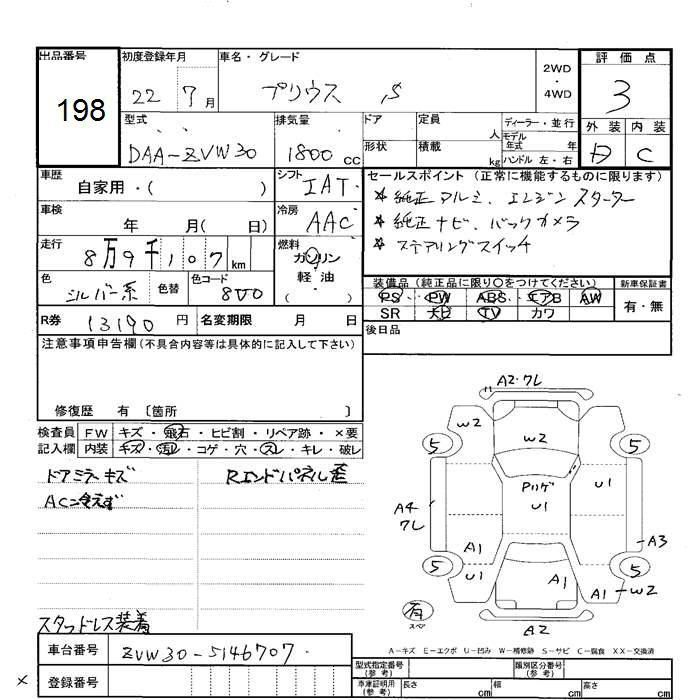 出品番号 198
初度登録年月 22 7月
車名・グレード プリウス S
2WD・4WD
評価点 3
外装 内装 C
型式 DAA-ZVW30
排気量 1800cc
ドア 形状
定員 人 積載 kg
ディーラー・並行
モデル年式 年
ハンドル 左・右
車歴 自家用・( )
シフト IAT
車検 年 月( 日)
冷房 AAC
走行 8万9千107km
燃料 ガソリン 軽油 ( )
色 シルバー系 色替 色コード 800
セールスポイント(正常に機能するものに限ります)
☆純正アルミ、エンジンスターター
☆純正ナビ、バックカメラ
☆ステアリングスイッチ
装備品(純正品に限り○をつけてください)
PS PW ABS エアB AW
SR ナビ TV カワ
新車保証書 有・無
R券 13190円 名変期限 月 日
後日品
注意事項申告欄(不具合内容等は具体的に記入して下さい)
修復歴 有〔箇所 〕
検査員記入欄
FW キズ・飛石・ヒビ割・リペア跡・×要
内装 キズ・汚レ・コゲ・穴・スレ・キレ・破レ
ドアミラーキズ
AC冷えず
Rエンドパネル歪
スタッドレス装着
A2・ワレ
W2
W2
5
5
Pハゲ
U1
U1
A4
ワレ
A3
A1
U1
A1
5
5
A1
W2
A2
有
スペア
A-キズ E-エクボ U-凹み W-補修跡 S-サビ C-腐食 XX-交換済
車台番号 ZVW30-5146707
× 登録番号
型式指定番号(参考) 類別区分番号(参考)
車庫証明用(参考) 長さ cm 幅 cm 高さ cm